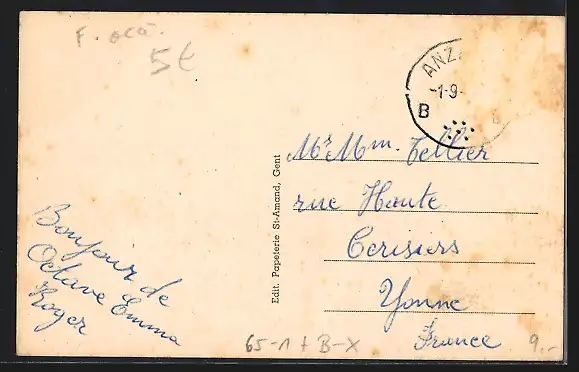 F. occ.
5€
ANZ
-1-9-
B B
Mr Mm. Tellier
rue Haute
Cerisiers
Yonne
France
Bonjour de
Octave Emma
Roger
Edit. Papeterie St-Amand, Gent
65-1 + B-X
9.-